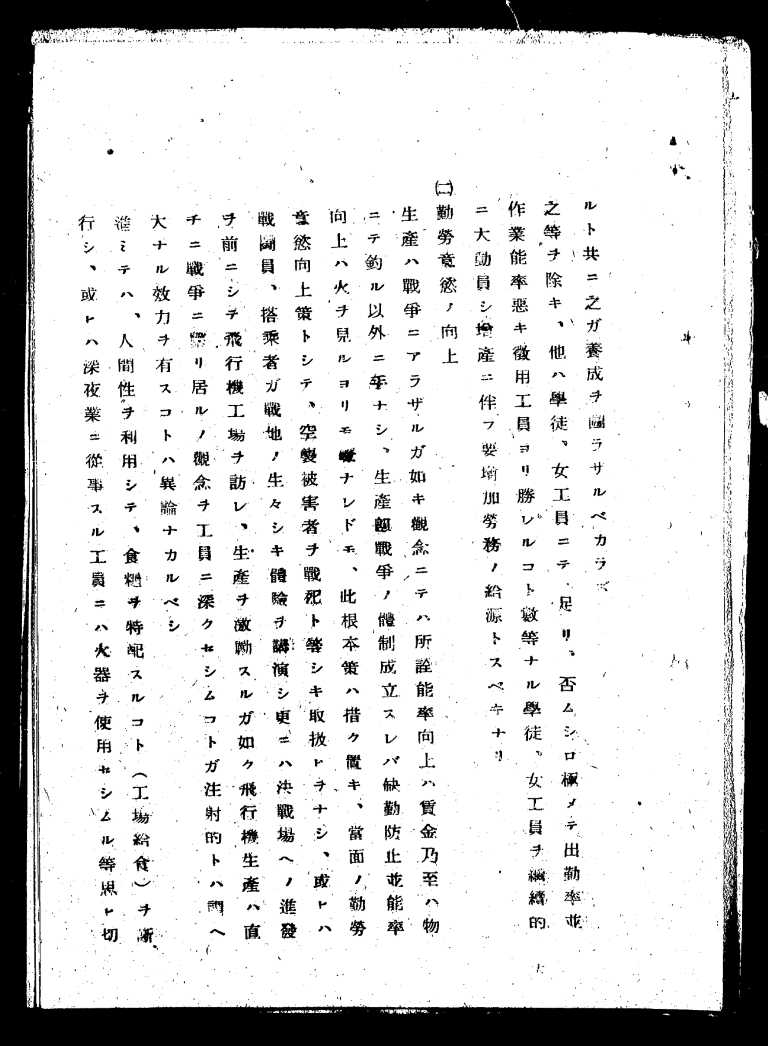 ルト共ニ之ガ養成ヲ圖ラザルベカラズ
之等ヲ除キ、他ハ學徒、女工員ニテ足リ。否ムシロ極メテ出勤率並
作業能率惡キ徴用工員ヨリ勝レルコト數等ナル學徒、女工員ヲ繼續的
ニ大動員シ增產ニ伴フ要增加勞務ノ給源トスベキナリ
㈡勤勞意慾ノ向上
生產ハ戰爭ニアラザルガ如キ觀念ニテハ所詮能率向上ハ賃金乃至ハ物
ニテ釣ル以外ニ手ナシ、生產卽戰爭ノ體制成立スレバ缺勤防止並能率
向上ハ火ヲ見ルヨリモナレドモ、此根本策ハ措ク置キ、當面ノ勤勞
意慾向上策トシテ、空襲被害者ヲ戰死ト等シキ取扱トヲナシ、或ヒハ
戰鬪員、搭乘者ガ戰地ノ生々シキ體險ヲ講演シ更ニハ決戰場ヘノ進發
ヲ前ニシテ飛行機工場ヲ訪レ、生產ヲ激勵スルガ如ク飛行機生產ハ直
チニ戰爭ニ繫リ居ルノ觀念ヲ工員ニ深クセシムコトガ注射的トハ謂ヘ
大ナル效力ヲ有スコトハ異論ナカルベシ
進ミテハ、人間性ヲ利用シテ、食糧ヲ特配スルコト(工場給食)ヲ斷
行シ、或ヒハ深夜業ニ從事スル工員ニハ火器ヲ使用セシムル等思ヒ切